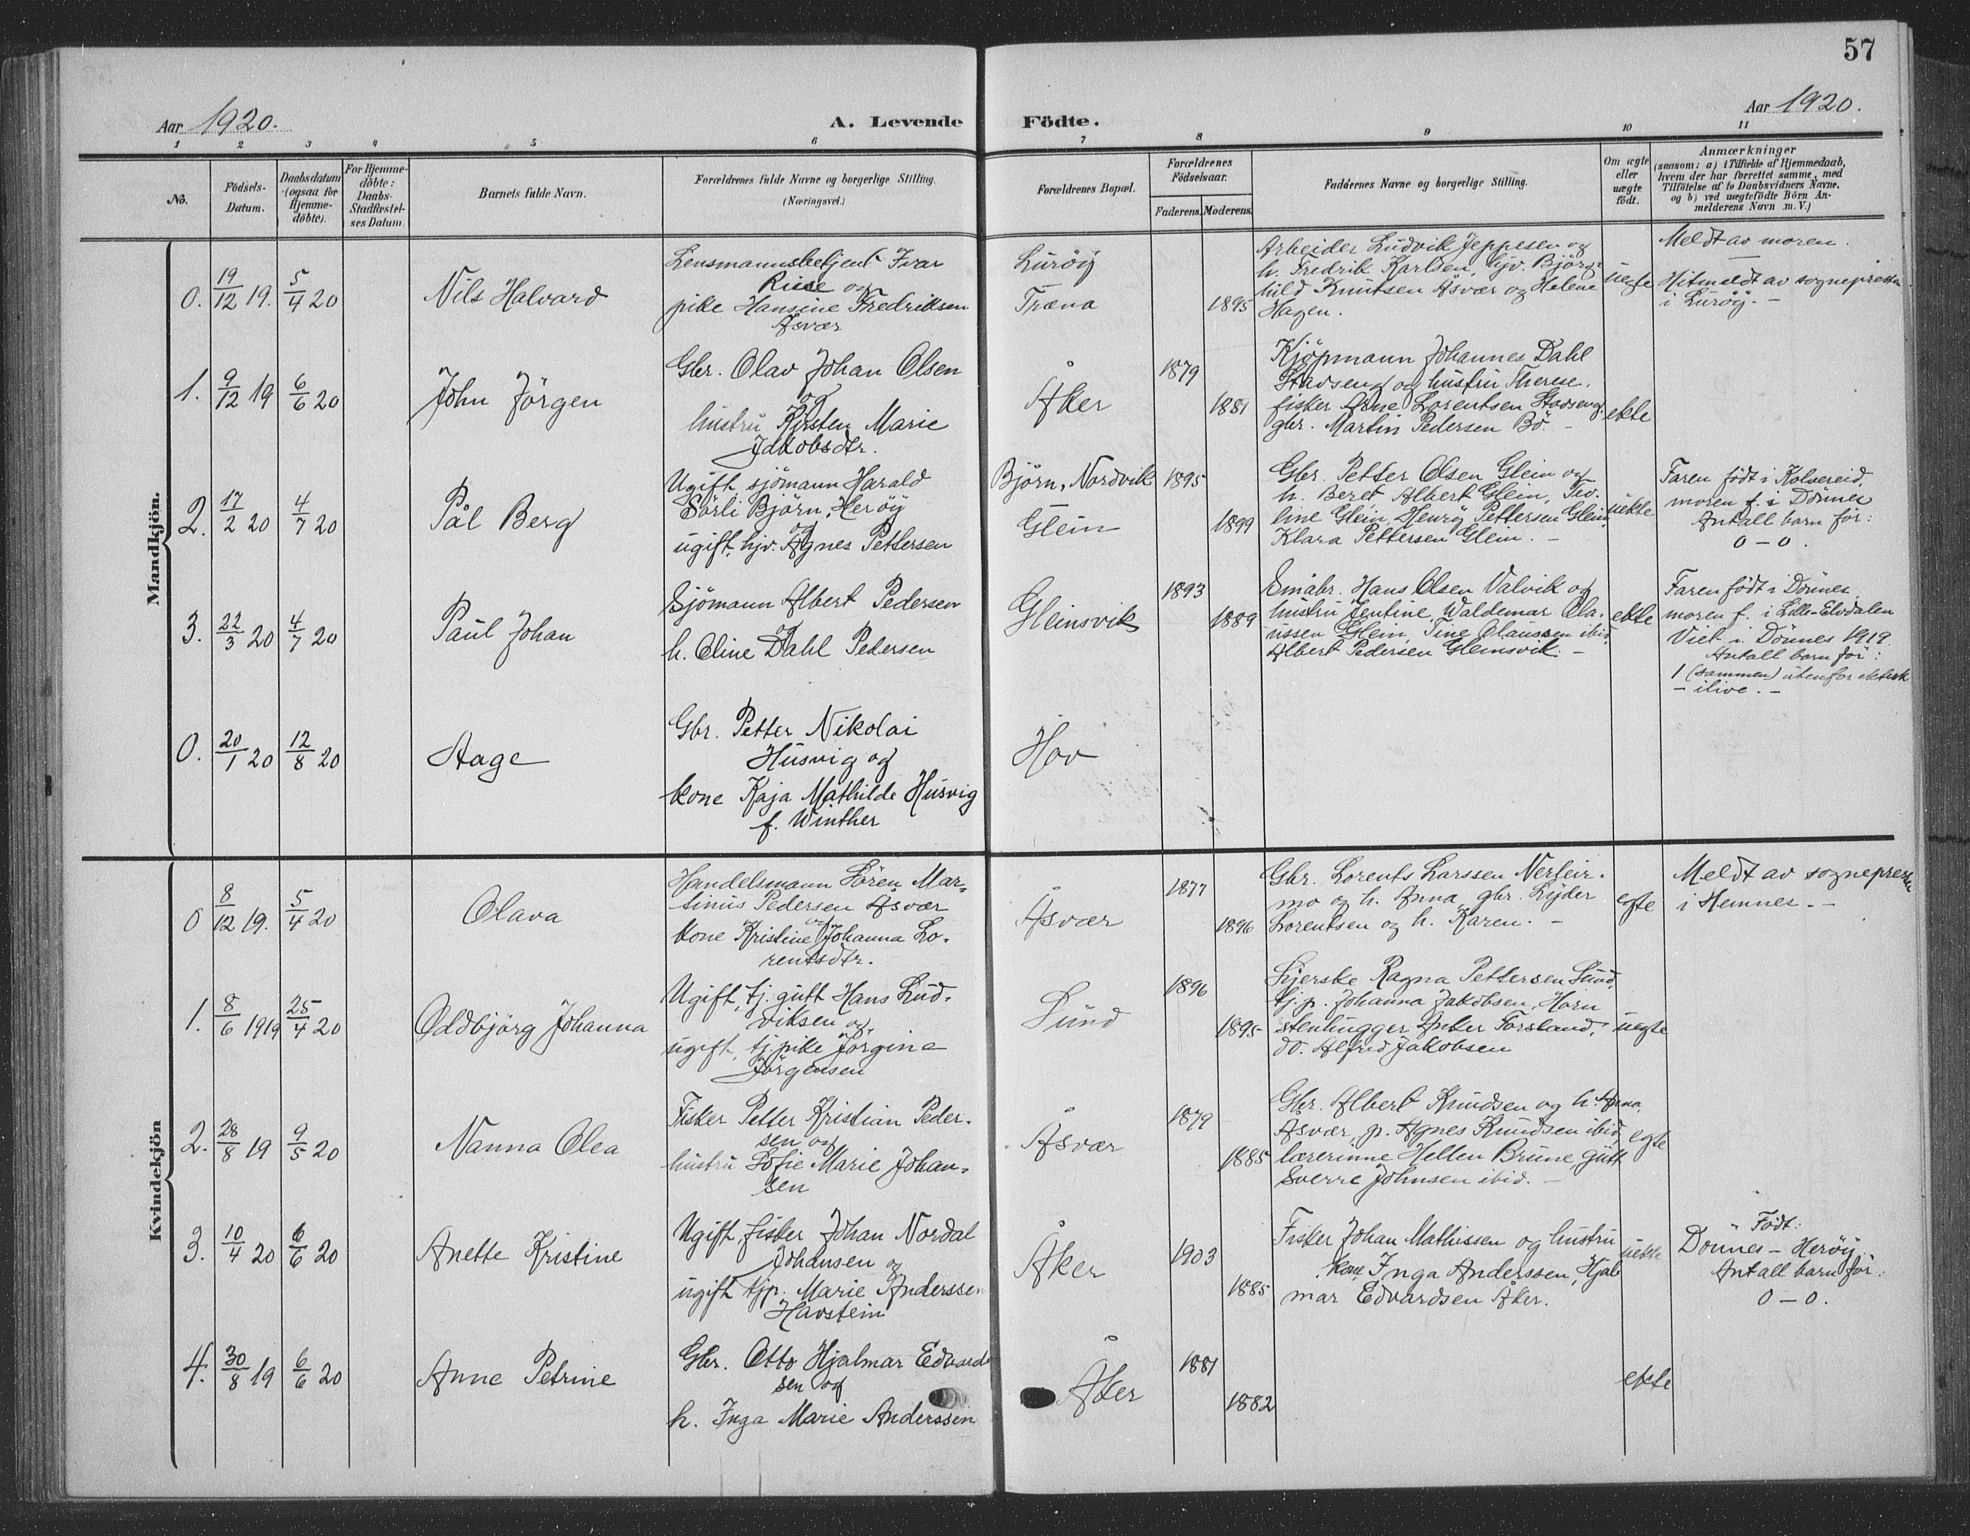 57
Aar 1920.
A. Levende Födte.
Aar 1920.
1 2 3 4 5 6 7 8 9 10 11
No.
Födsels-
Datum.
Daabsdatum
(ogsaa for
Hjemme-
döbte).
For Hjemme-
döbte:
Daabs-
Stadfæstel-
ses Datum.
Barnets fulde Navn.
Forældrenes fulde Navne og borgerlige Stilling.
(Næringsvei.)
Forældrenes Bopæl.
Forældrenes
Födselsaar.
Faderens. Moderens.
Faddernes Navne og borgerlige Stilling.
Om ægte
eller
uægte
födt.
Anmærkninger
(saasom: a) i Tilfælde af Hjemmedaab,
hvem der har forrettet samme, med
Tilföielse af to Daabsvidners Navne.
og b) ved uægtefödte Börn An-
melderens Navn m. V.)
Mandkjön.
0. 19/12 19. 5/4 20
Nils Halvard
Lensmannsbetjent Ivar
Riise og
pike Hansine Fredriksen
Asvær
Lurøy
Træna
1895
Arbeider Ludvik Jeppesen og
h. Fredrik Karlsen, hjv. Bjørg-
hild Knutsen Asvær og Helene
Hagen.
uegte
Meldt av moren.
Hitmeldt av sognepresten
i Lurøy. -
1. 9/12 19 6/6 20
John Jörgen
Gbr. Olav Johan Olsen
og
hustru Kirsten Marie
Jakobsdtr.
Åker
1879
1881
Kjøpmann Johannes Dahl
Stavseng og hustru Therese.
fisker Arne Lorentsen Stavseng.
gbr. Martin Pedersen Bö. -
ekte
2. 17/2 20 4/7 20
Pål Berg
Ugift sjömann Harald
Sörli Björn, Herøy
og
ugift, hjv. Agnes Pettersen
Bjørn, Nordvik
Glein
1895
1899
Gbr. Petter Olsen Glein og
h. Beret Albert Glein,
line Glein, Henry Pettersen Glein
Klara Pettersen Glein. -
uekte
Faren født i Kolvereid,
moren f. i Dönnes
Antall barn før:
0 - 0.
3. 22/3 20 4/7 20
Paul Johan
Sjömann Albert Pedersen
og
h. Oline Dahl Pedersen
Gleinsvik
1893
1889
Småbr. Hans Olsen Valvik og
hustru Entine, Waldemar Cla-
ussen Glein, Tine Claussen ibid,
Albert Pedersen Gleinsvik. -
ekte
Faren født i Dönnes,
moren f. i Lille-Elvdalen
Viet i Dönnes 1919.
Antall barn før:
1 (sammen) utenfor ektesk
- ilive. -
0. 20/1 20 12/8 20
Aage
Gbr. Petter Nikolai
Husvig og
kone Kaja Mathilde Husvig
f. Winther
Hov
Kvindekjön
0 8/12 19. 5/4 20
Olava
Handelsmann Sören Mar-
tinus Pedersen Åsvær
og
kone Kristine Johanna Lo-
rentsdtr.
Åsvær
1877
1896
Gbr. Lorents Larssen Nerleir-
mo og h. Anna, gbr. Lyder
Lorentsen og h. Karen. -
egte
Meldt av sognepresten
i Hemnes. -
1. 8/6 1919 25/4 20
Oddbjörg Johanna
Ugift, tj. gutt Hans Lud-
viksen og
ugift, tj. pike Jörgine
Jörgensen
Sund
1896
1895
Syerske Ragna Pettersen Sund,
tj. p. Johanna Jakobsen, Horn
stenhugger Anker Forsland,
do. Alfred Jakobsen
uegte
2. 28/8 19 9/5 20
Nanna Olea
Fisker Petter Kristian Peder-
sen og
hustru Sofie Marie Johan-
sen
Åsvær
1879
1885
Gbr. Albert Knudsen og h. Anna,
Asvær, p. Agnes Knudsen ibid,
lærerinne Hellen Brune, gutt
Sverre Johnsen ibid. -
egte
3. 10/4 20 6/6 20
Anette Kristine
Ugift, fisker Johan Nordal
Johansen og
ugift tjp. Marie Anderssen
Havstein
Åker
1903
1885
Fisker Johan Mathissen og hustru
kone Inga Anderssen, Hjal
mar Edvardsen Åker.
uekte
Født:
Dönnes - Herøy.
Antall barn før:
0 - 0.
4. 30/8 19 6/6 20
Anne Petrine
Gbr. Otto Hjalmar Edvard
sen og
h. Inga Marie Anderssen
Åker
1881
1882
ekte